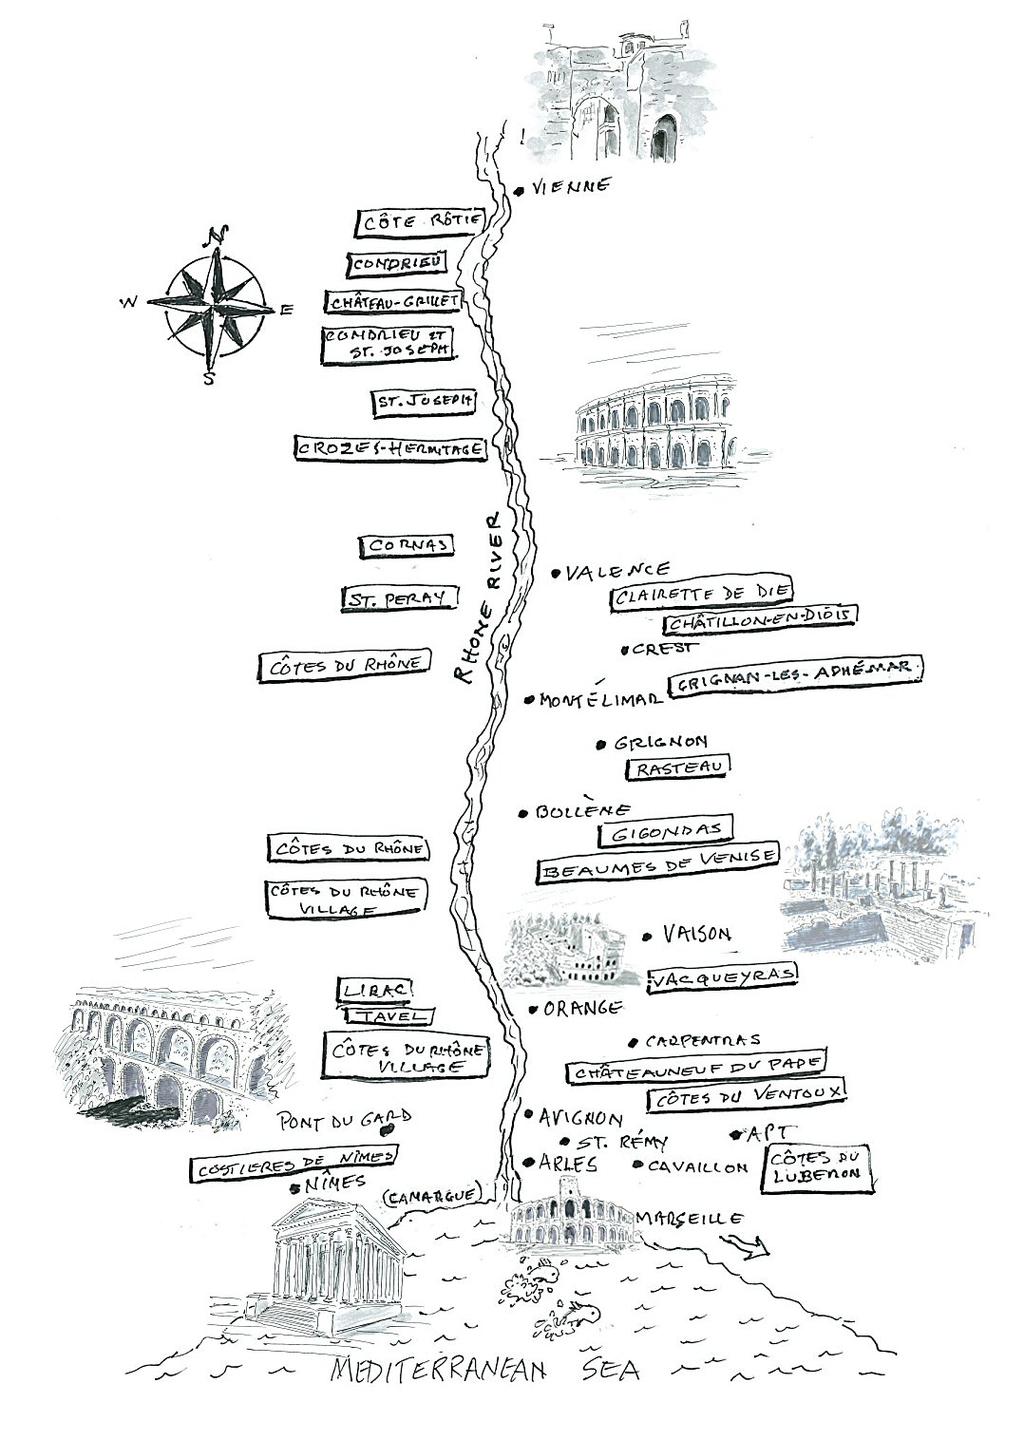 VIENNE
CÔTE RÔTIE
N
CONDRIEU
W
E
CHÂTEAU-GRILLET
CONDRIEU ET
ST. JOSEPH
S
ST. JOSEPH
CROZES-HERMITAGE
RHONE RIVER
CORNAS
VALENCE
CLAIRETTE DE DIE
ST. PERAY
CHÂTILLON-EN-DIOIS
CREST
CÔTES DU RHÔNE
GRIGNAN-LES-ADHÉMAR
MONTÉLIMAR
GRIGNON
RASTEAU
BOLLÈNE
GIGONDAS
CÔTES DU RHÔNE
BEAUMES DE VENISE
CÔTES DU RHÔNE
VILLAGE
VAISON
VACQUEYRAS
LIRAC
ORANGE
TAVEL
CARPENTRAS
CÔTES DU RHÔNE
VILLAGE
CHÂTEAUNEUF DU PAPE
CÔTES DU VENTOUX
PONT DU GARD
AVIGNON
APT
ST. RÉMY
COSTIERES DE NÎMES
ARLES
CAVAILLON
CÔTES DU
LUBERON
NÎMES
(CAMARGUE)
MARSEILLE
MEDITERRANEAN SEA